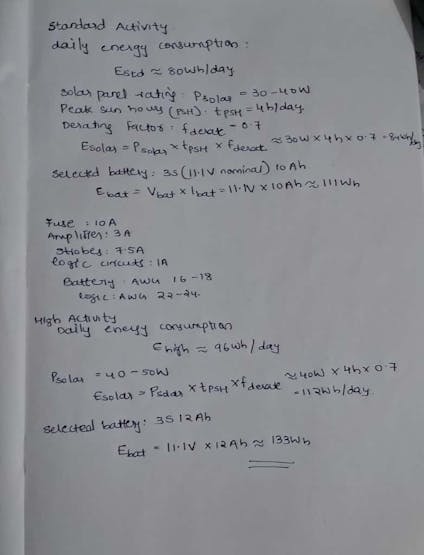 Standard Activity
daily energy consumption :
Estd ≈ 80Wh/day
Solar panel rating : Psolar = 30-40W
Peak sun hours (PSH) : tPSH = 4h/day.
Derating factor : fderat = 0.7
Esolar = Psolar × tPSH × fderat ≈ 30W × 4h × 0.7 = 84Wh/day
selected battery : 3S (11.1V nominal) 10Ah
Ebat = Vbat × Ibat = 11.1V × 10Ah ≈ 111Wh
Fuse : 10A
Amplifier : 3A
strobes : 7.5A
logic circuits : 1A
Battery : AWG 16-18
logic : AWG 22-24.
High Activity
Daily energy consumption
Ehigh ≈ 96Wh/day
Psolar = 40-50W
Esolar = Psolar × tPSH × fderate ≈ 40W × 4h × 0.7
= 112Wh/day.
selected battery : 3S 12Ah
Ebat = 11.1V × 12Ah ≈ 133Wh